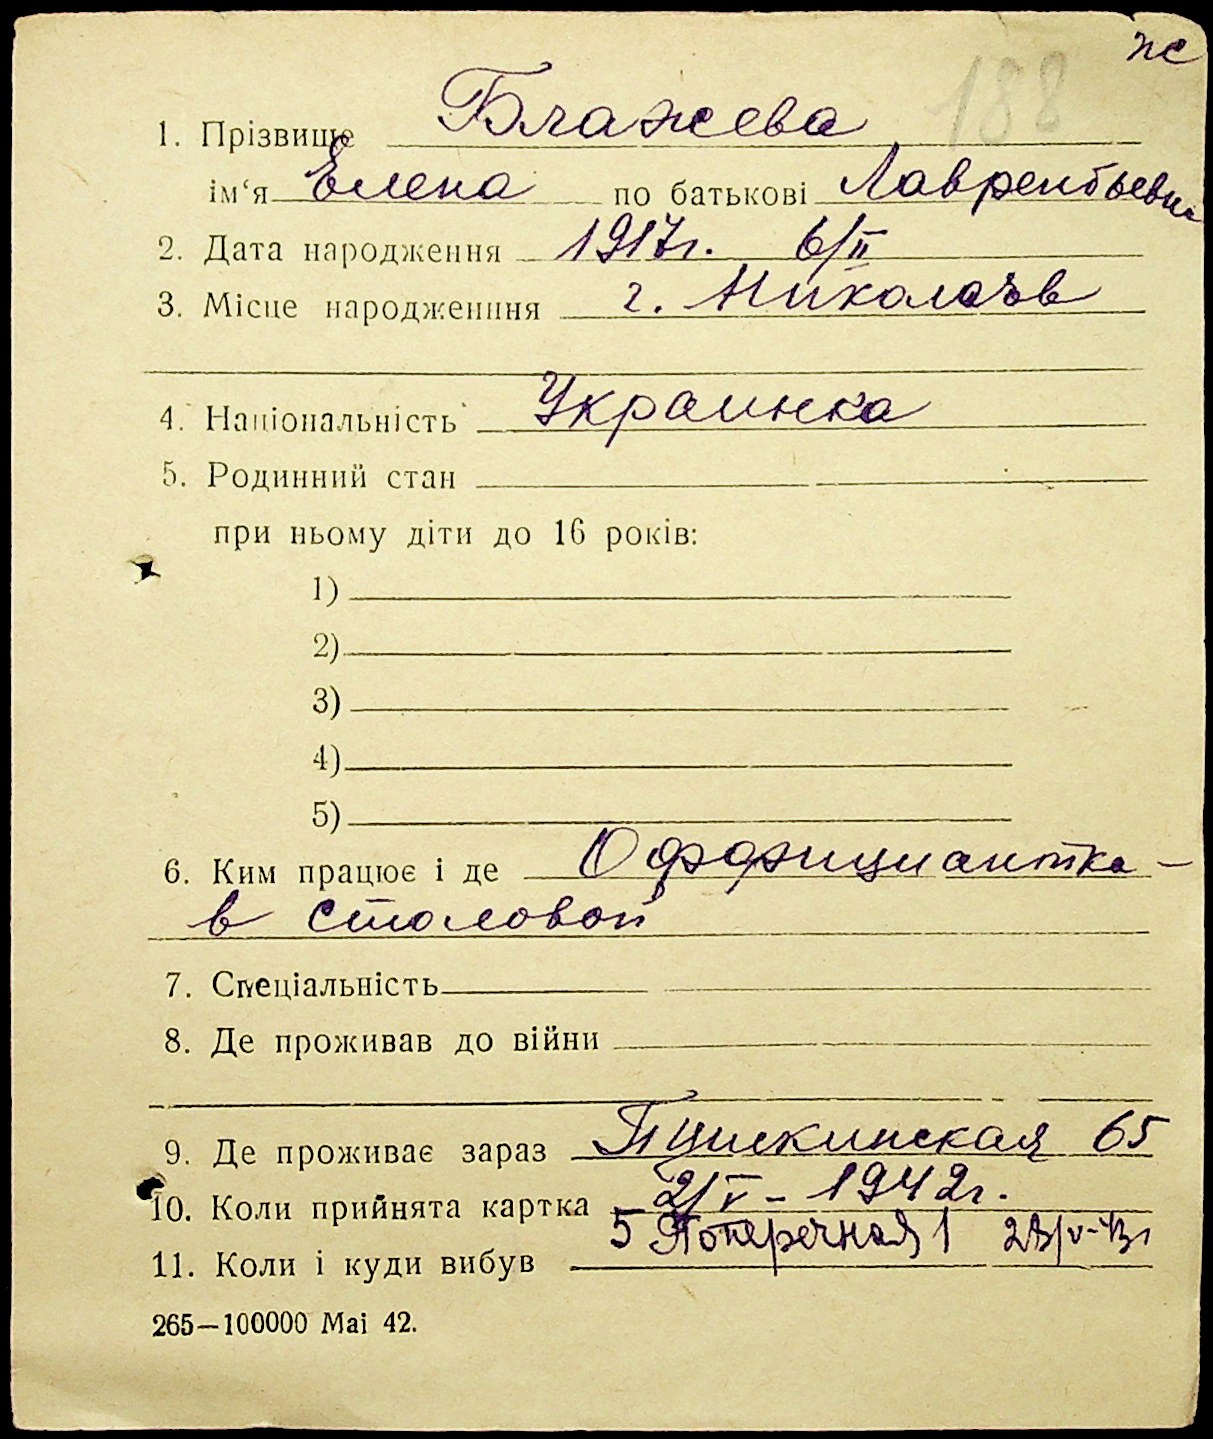 же
188
1. Прізвище Блажева
ім‘я Елена по батькові Лаврентьевна
2. Дата народження 1917г. 6/II
3. Місце народженння г. Николаев
4. Національність Украинка
5. Родинний стан
при ньому діти до 16 років:
1)
2)
3)
4)
5)
6. Ким працює і де Оффициантка -
в столовой
7. Спеціальність
8. Де проживав до війни
9. Де проживає зараз Пушкинская 65
10. Коли прийнята картка 2/V - 1942г.
5 Поперечная 1 23/V-43г
11. Коли і куди вибув
265—100000 Mai 42.